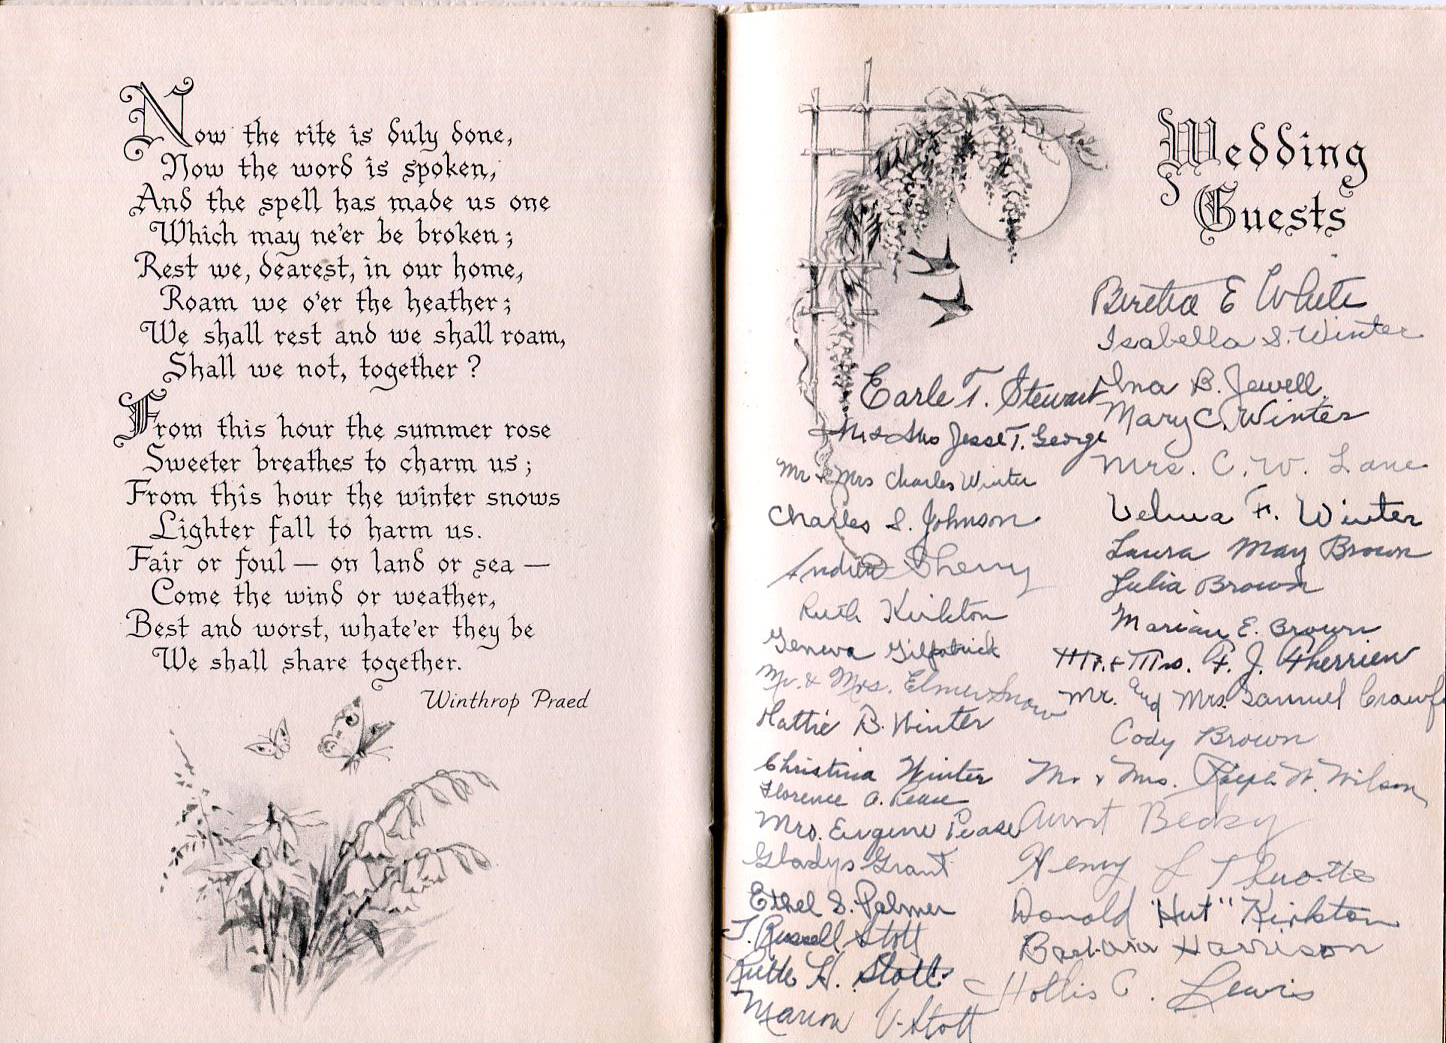 Now the rite is duly done,
Now the word is spoken,
And the spell has made us one
Which may ne'er be broken;
Rest we, dearest, in our home,
Roam we o'er the heather;
We shall rest and we shall roam,
Shall we not, together?
From this hour the summer rose
Sweeter breathes to charm us;
From this hour the winter snows
Lighter fall to harm us.
Fair or foul — on land or sea —
Come the wind or weather,
Best and worst, whate'er they be
We shall share together.
Winthrop Praed
Wedding
Guests
Bertha E White
Isabella S. Winter
Earle T. Stewart
Ina B. Jewell
Mary C. Winter
Mr & Mrs Jesse T. George
Mrs. C. W. Lane
Mr & Mrs Charles Winter
Charles S. Johnson
Velma F. Winter
Laura May Brown
Sherry
Julia Brown
Ruth Kirkton
Marian E. Brown
Geneva Gilpatrick
Mr. & Mrs. F. J. Therrien
Mr. & Mrs. Elmer Snow
Mr. and Mrs. Samuel Crawf
Hattie B. Winter
Cody Brown
Christina Winter
Mr. & Mrs. Ralph W. Wilson
Florence A. Pease
Mrs. Eugene Pease
Aunt Becky
Gladys Grant
Henry L
Ethel S. Palmer
Donald "Hut" Kirkton
J. Russell Stott
Barbara Harrison
Ruth H. Stott
Hollis C. Lewis
Marion V. Stott